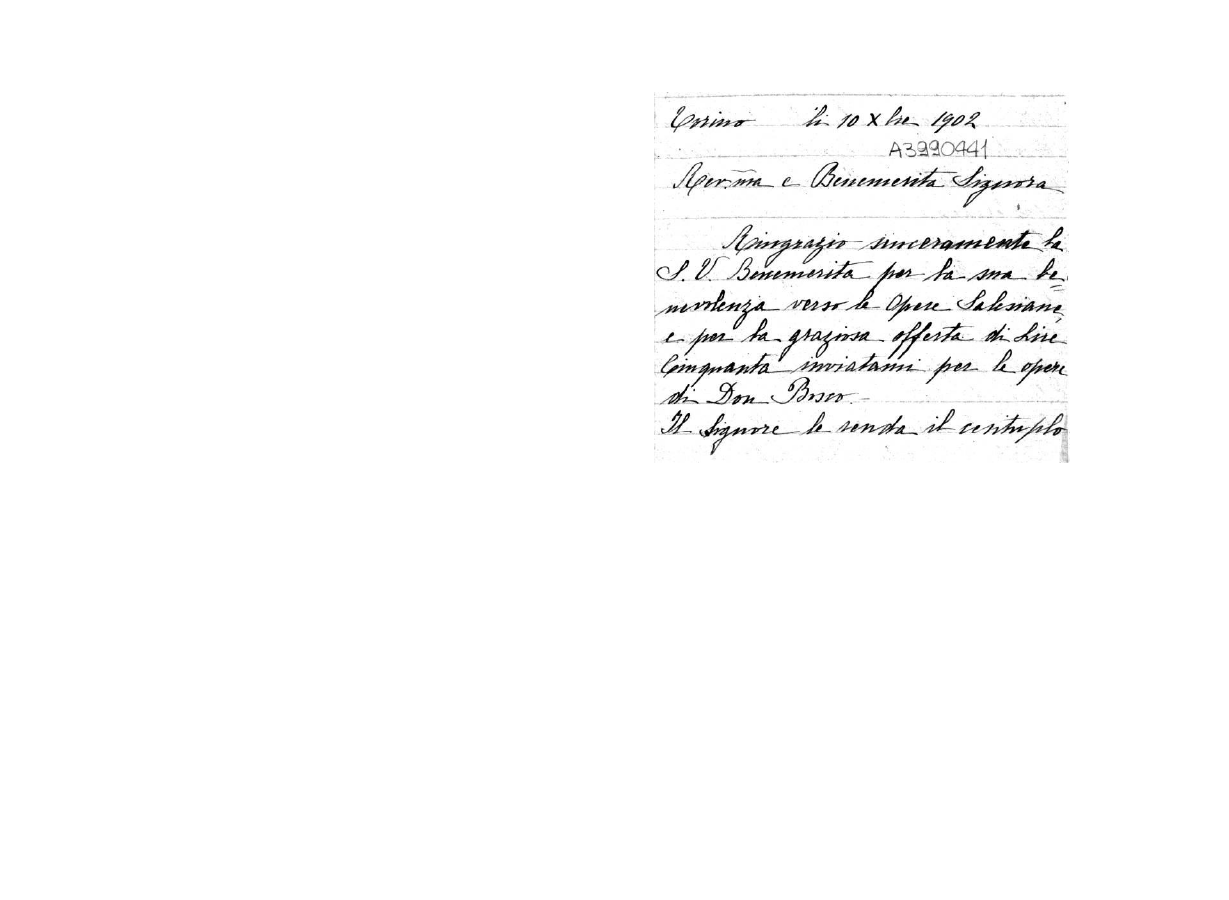 Torino li 10 Xbre 1902
A3990441
Rev.ma e Benemerita Signora
Ringrazio sinceramente la
S. V. Benemerita per la sua be=
nevolenza verso le Opere Salesiane,
e per la graziosa offerta di Lire
Cinquanta inviatami per le opere
di Don Bosco.
Il Signore le renda il centuplo